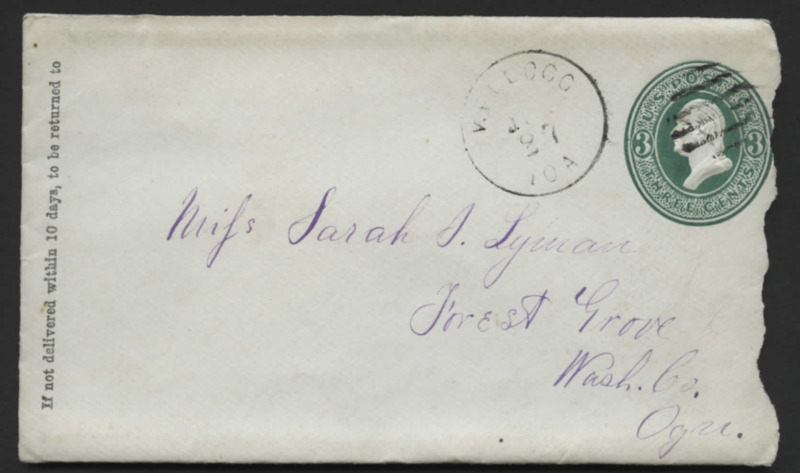 If not delivered within 10 days, to be returned to
KELLOGG
7
IOA
U.S. POSTAGE
3 3
THREE CENTS
Miss Sarah S. Lyman
Forest Grove
Wash. Co.
Ogn.